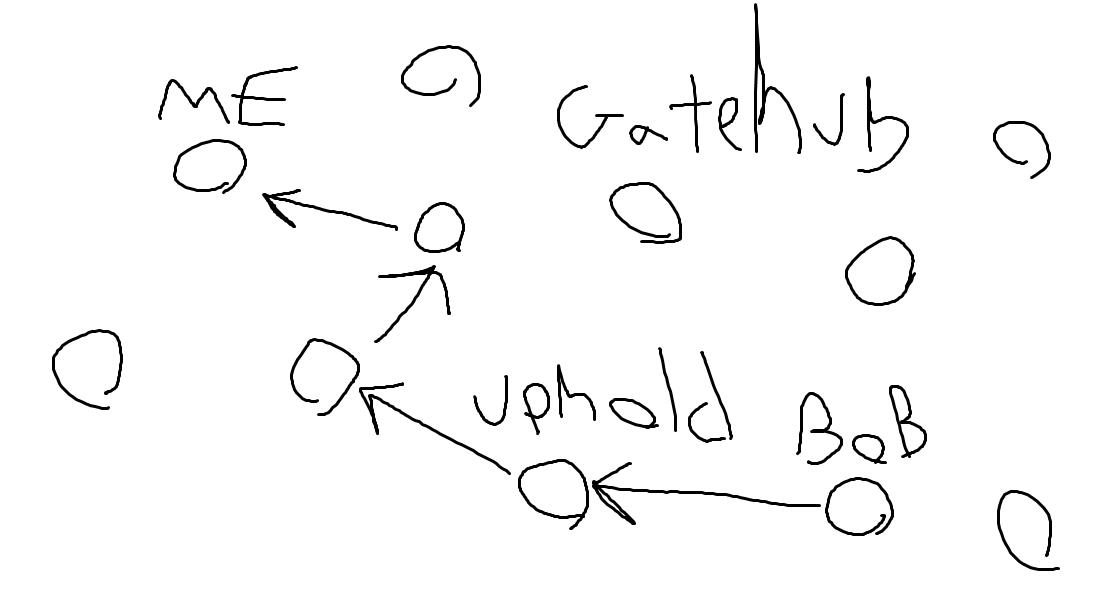 ME
Gatehub
uphold
BoB